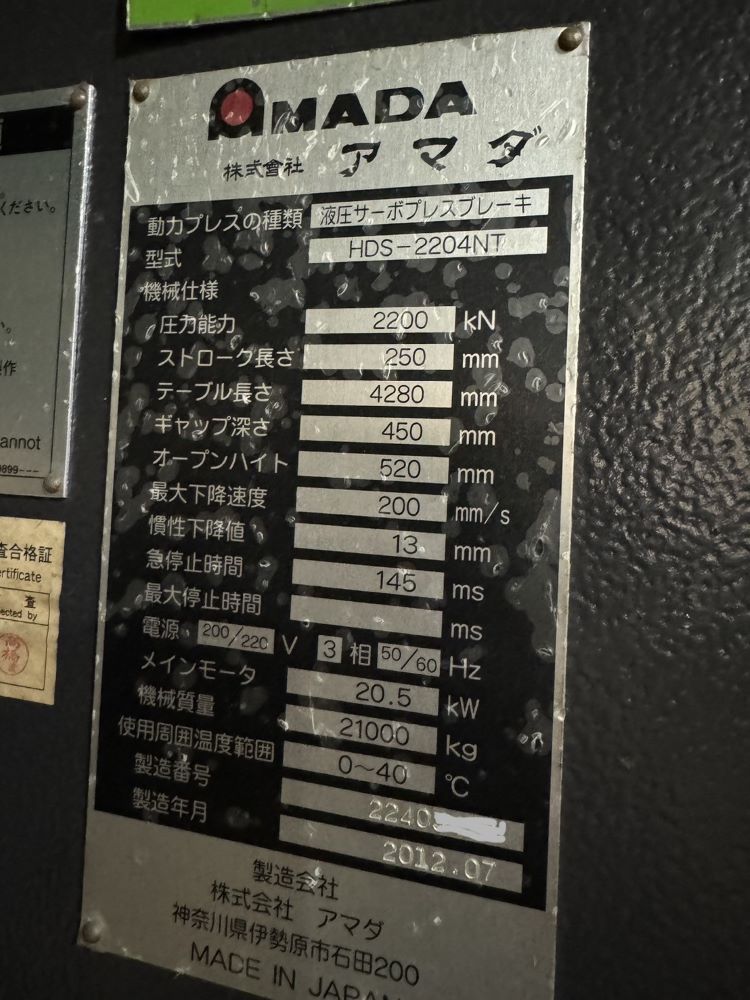 AMADA
株式會社 アマダ
動力プレスの種類 液圧サーボプレスブレーキ
型式 HDS-2204NT
機械仕様
圧力能力 2200 kN
ストローク長さ 250 mm
テーブル長さ 4280 mm
ギャップ深さ 450 mm
オープンハイト 520 mm
最大下降速度 200 mm/s
慣性下降値 13 mm
急停止時間 145 ms
最大停止時間 ms
電源 200/220 V 3 相 50/60 Hz
メインモータ 20.5 kW
機械質量 21000 kg
使用周囲温度範囲 0~40 ℃
製造番号 2240
製造年月 2012.07
製造会社
株式会社 アマダ
神奈川県伊勢原市石田200
MADE IN JAPAN
ください。
作
annot
9899---
査合格証
ertificate
査
ected by